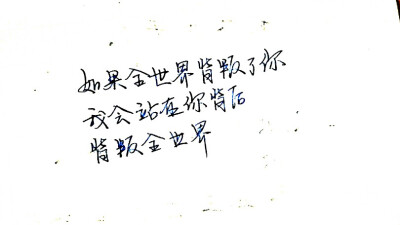 如果全世界背叛了你
我会站在你背后
背叛全世界